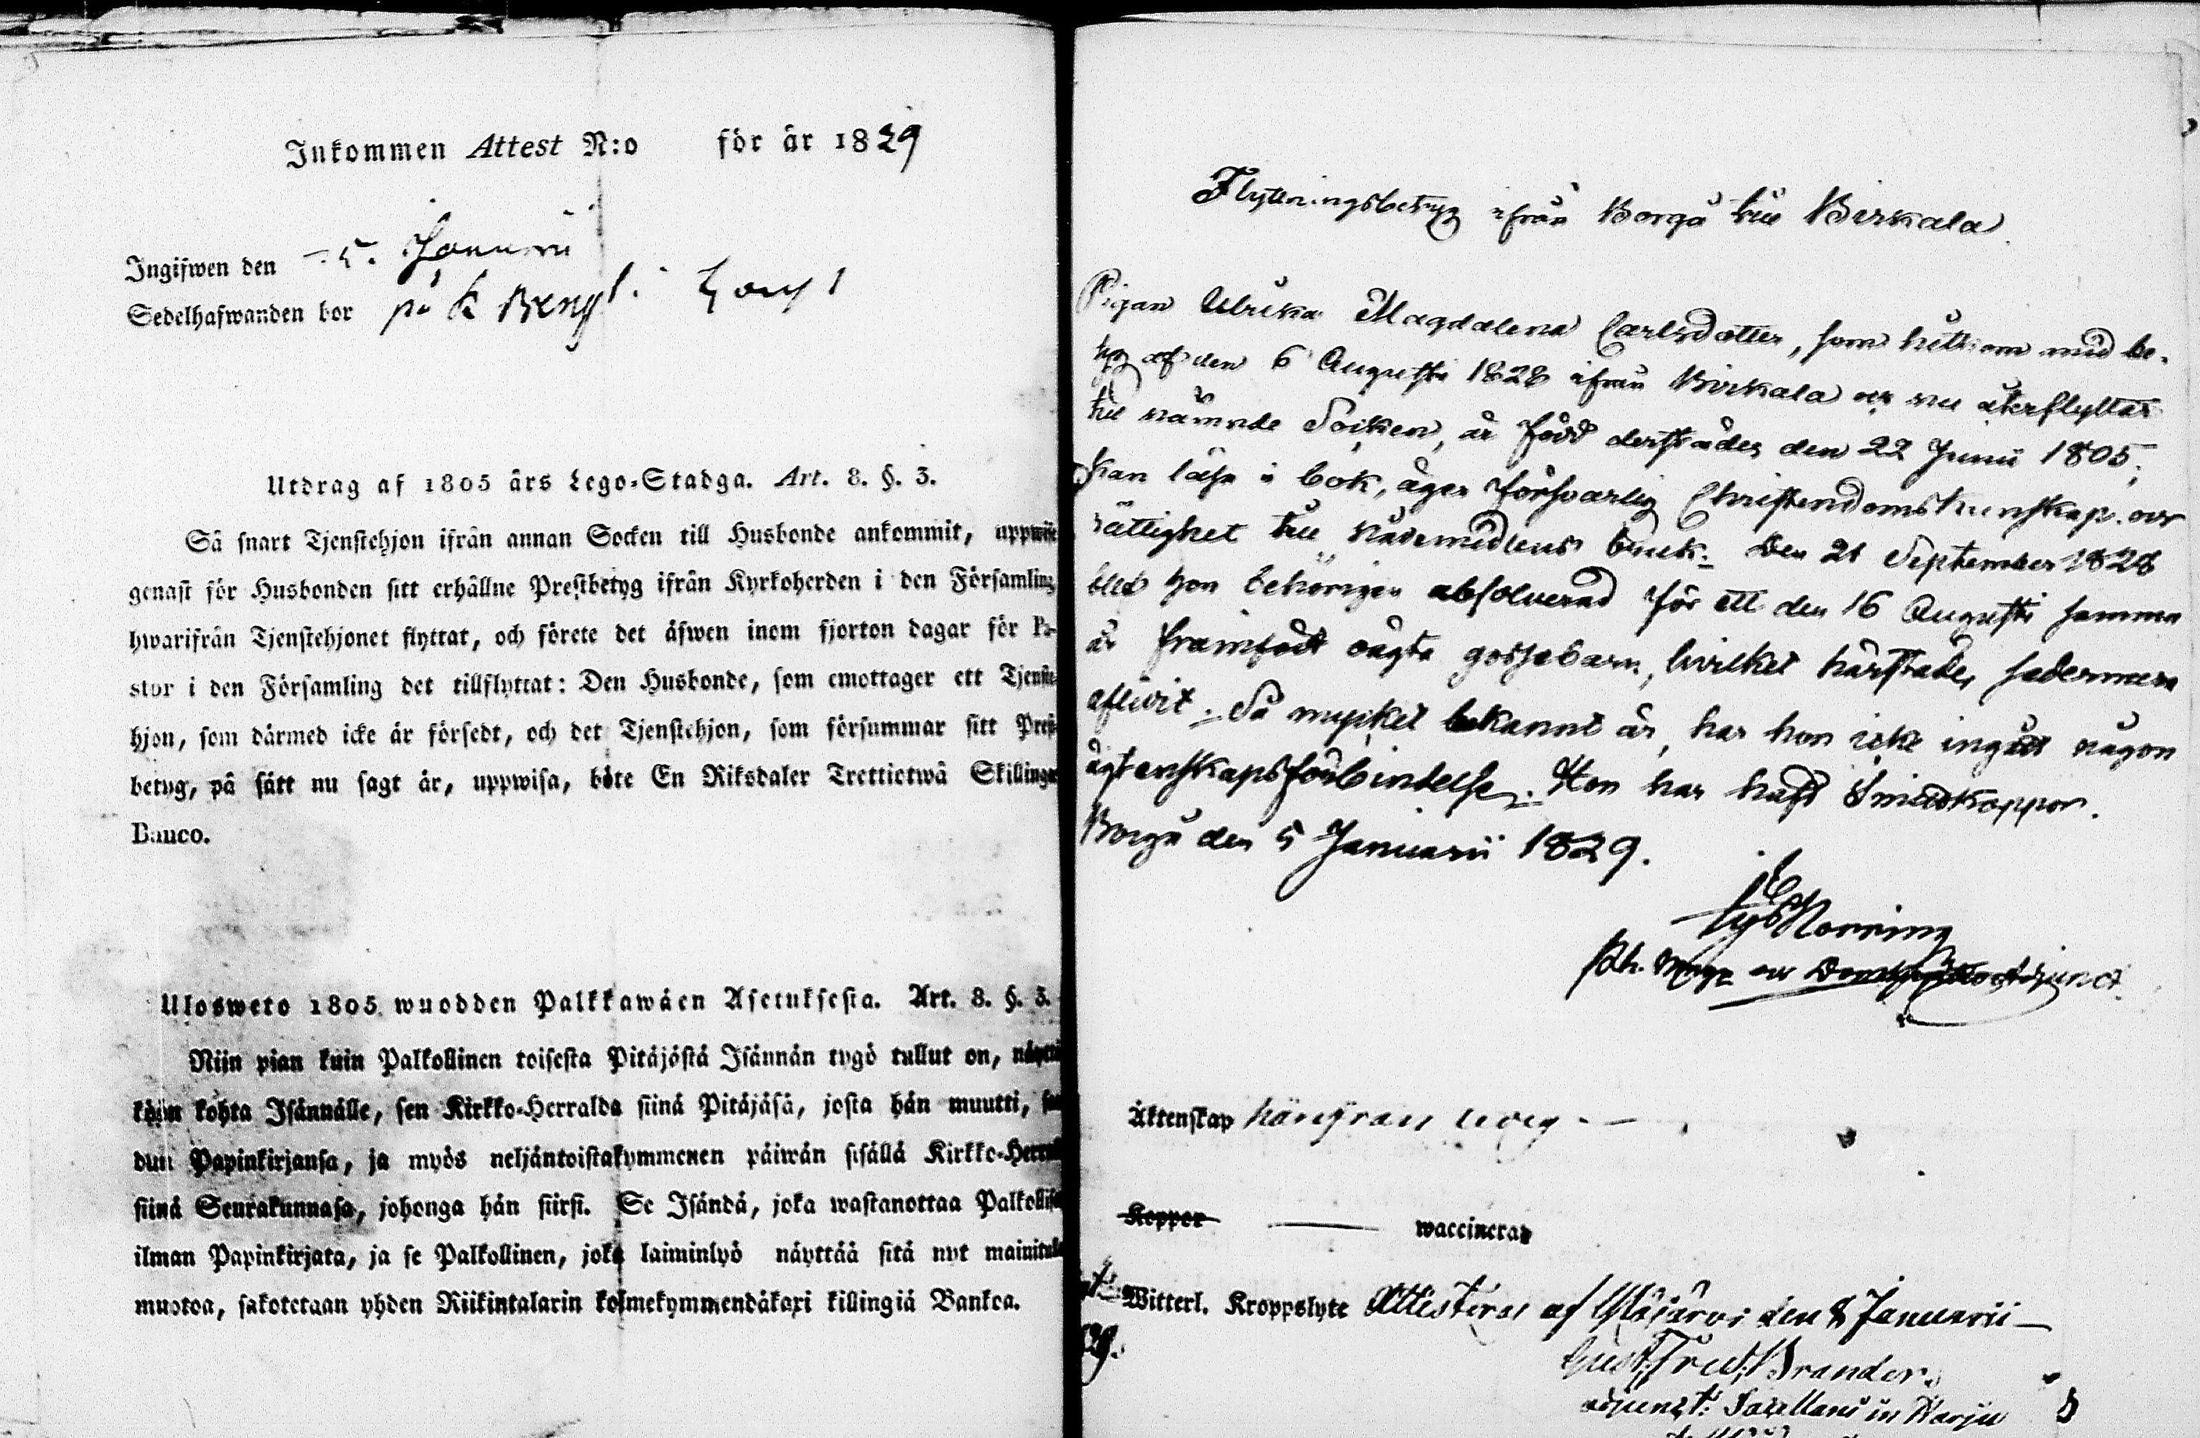 Inkommen Attest N:o för år 1829
Ingifwen den 5. Januarii
Sedelhafwanden bor på
Utdrag af 1805 års Lego-Stadga. Art. 8. §. 3.
Så snart Tjenstehjon ifrån annan Socken till Husbonde ankommit, uppwise
genast för Husbonden sitt erhållne Prestbetyg ifrån Kyrkoherden i den Församling,
hwarifrån Tjenstehjonet flyttat, och förete det äfwen inom fjorton dagar för Pa-
stor i den Församling det tillflyttat: Den Husbonde, som emottager ett Tjenste-
hjon, som därmed icke är försedt, och det Tjenstehjon, som försummar sitt Prest-
betyg, på sätt nu sagt är, uppwisa, böte En Riksdaler Trettiotwå Skillingar
Banco.
Ulosweto 1805 wuodden Palkkawäen Asetuksesta. Art. 8. §. 3.
Niin pian kuin Palkollinen toisesta Pitäjästä Isännän tygö tullut on, näyttä
köön kohta Isännälle, sen Kirkko-Herralda siinä Pitäjäsä, josta hän muutti, saa
dun Papinkirjansa, ja myös neljäntoistakymmenen päiwän sisällä Kirkko-Herralle
siinä Seurakunnasa, johonga hän siirsi. Se Isändä, joka wastanottaa Palkollisen
ilman Papinkirjata, ja se Palkollinen, joka laiminlyö näyttää sitä nyt mainitulla
muotoa, sakotetaan yhden Riikintalarin kolmekymmendäkaxi killingiä Bankoa.
Flyttningsbetyg ifrån Borgå till Birkala.
Pigan Ulrika Magdalena Carlsdotter, som hitkom med be-
tyg af den 6 Augusti 1828 ifrån Birkala och nu återflyttar
till nämnde Socken, är född derstädes den 22 Junii 1805;
kan läsa i bok, äger försvarlig Christendomskunskap och
rättighet till nådemedlens bruk. Den 21 September 1828
blef hon behörigen absolverad för ett den 16 Augusti samma
år framfödt oägta gossebarn, hvilket härstädes sedermera
aflidit. Så mycket bekannt är, har hon icke ingått någon
ägtenskapsförbindelse. Hon har haft Smittkoppor.
Borgå den 5 Januarii 1829.
Äktenskap
Koppor waccinerad
Witterl. Kroppslyte Attesteras af Ylöjärvi den 8 Januarii
Gust. Fred. Brander.
adjunct: Sacellani in Harju